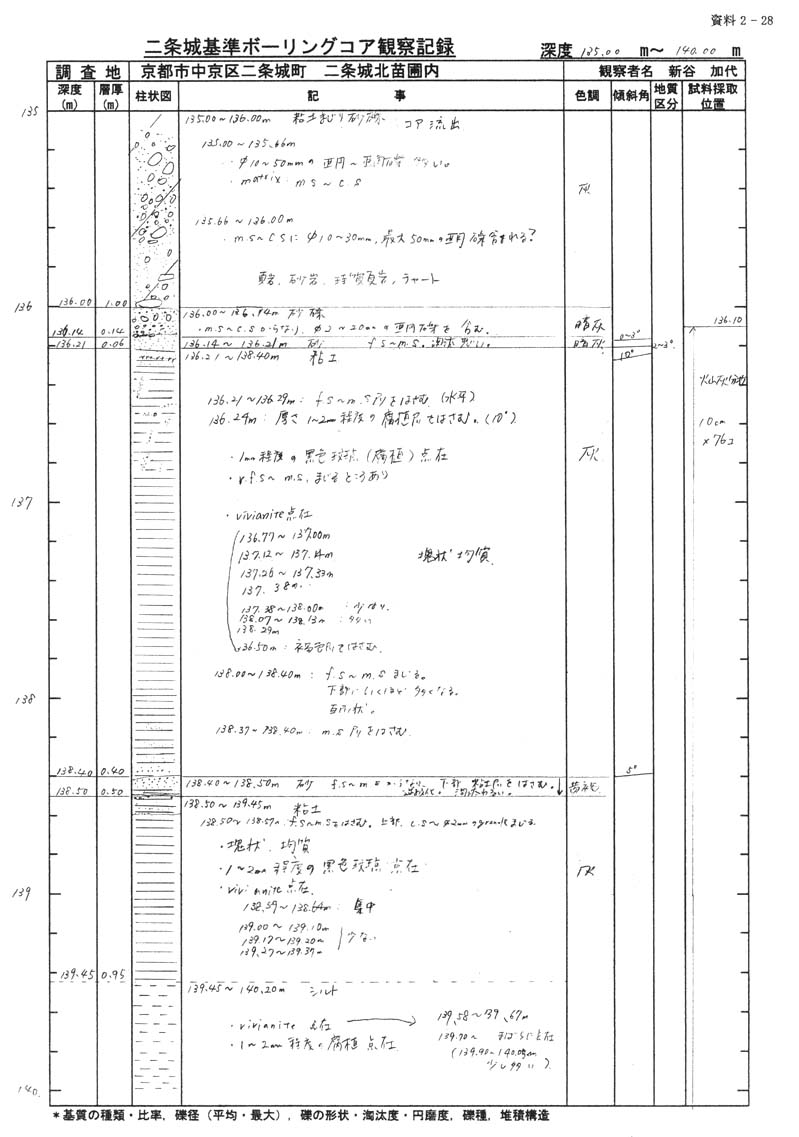 資料2-28
二条城基準ボーリングコア観察記録 深度 135.00 m～ 140.00 m
調査地 京都市中京区二条城町 二条城北苗圃内 観察者名 新谷 加代
深度(m) 層厚(m) 柱状図 記事 色調 傾斜角 地質区分 試料採取位置
135
135.00～136.00m 粘土まじり砂礫 コア流出
135.00～135.66m
・φ10～50mmの亜円～亜角礫
・matrix: m.s～c.s
灰
135.66～136.00m
・m.s～c.sにφ10～30mm,最大50mmの亜円礫含まれる?
頁岩, 砂岩, 珪質頁岩, チャート
136
136.00 1.00
136.00～136.14m 砂礫
・m.s～c.sからなり, φ2～20mmの亜円礫を含む。
暗灰
136.10
136.14 0.14
136.14～136.21m 砂 f.s～m.s。淘汰悪い。
暗灰
0～3°
2～3°
136.21 0.06
136.21～138.40m 粘土
10°
136.21～136.29m: f.s～m.s をはさむ (水平)
136.29m: 厚さ1～2mm程度の腐植 はさむ。(10°)
火山灰分析
10cm
×76コ
・1mm程度の黒色斑点(腐植)点在
・v.f.s～m.s. まじるところあり
灰
137
・vivianite点在
136.77～137.00m
137.12～137.14m
137.26～137.33m
137.38m
137.38～138.00m:
138.07～138.13m: 多い
138.29m
136.50m: はさむ。
塊状 均質
138.00～138.40m: f.s～m.s まじる。
下部にいくほど多くなる。
138
138.37～138.40m: m.s をはさむ
138.40 0.40
5°
138.40～138.50m 砂 下部 をはさむ。
淘汰わるい。
138.50 0.50
138.50～139.45m 粘土
138.50～138.57m: f.s～m.sをはさむ。上部, c.s～φ2mmのgranuleまじる
・塊状 均質
・1～2mm程度の黒色斑点 点在
・vivianite点在
灰
139
138.59～138.64m: 集中
139.00～139.10m
139.17～139.20m 少ない
139.27～139.37m
139.45 0.95
139.45～140.20m シルト
・vivianite 点在 → 139.58～139.67m
139.70～ まばらに点在
・1～2mm程度の腐植 点在
(139.90～140.05m
少し多い)
140
*基質の種類・比率, 礫径(平均・最大), 礫の形状・淘汰度・円磨度, 礫種, 堆積構造